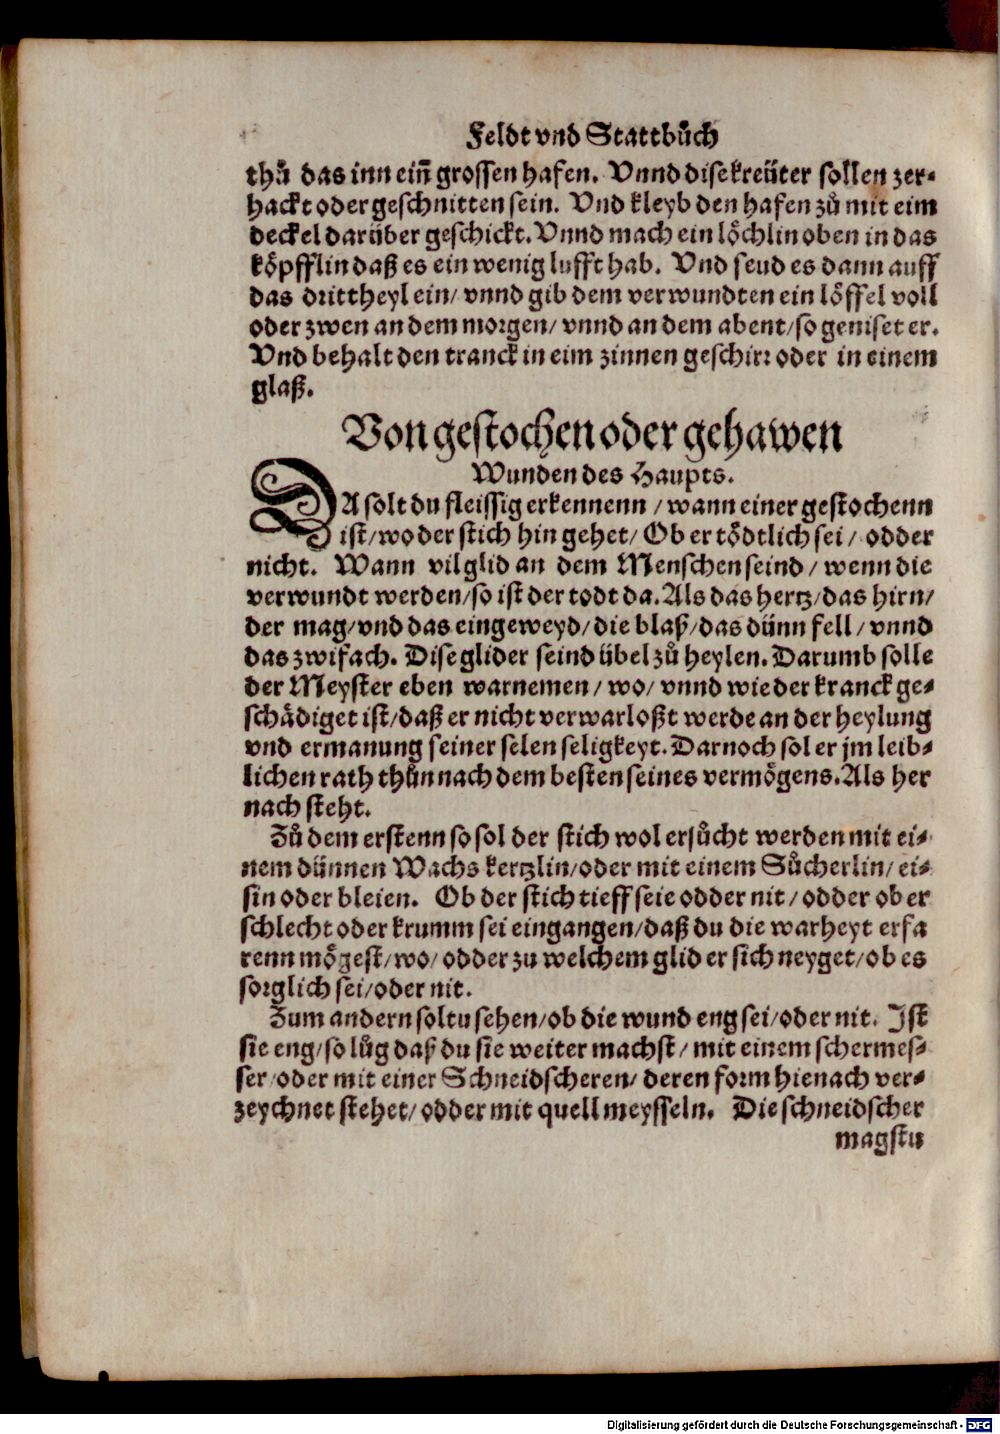 Feldt vnd Stattbuͦch
thuͦ das inn ein̄ grossen hafen. Vnnd dise kreüter sollen zer⸗
hackt oder geschnitten sein. Vnd kleyb den hafen zuͦ mit eim
deckel darüber geschickt. Vnnd mach ein loͤchlin oben in das
koͤpfflin daß es ein wenig lufft hab. Vnd seud es dann auff
das drittheyl ein/ vnnd gib dem verwundten ein loͤffel voll
oder zwen an dem morgen/ vnnd an dem abent/ so geniset er.
Vnd behalt den tranck in eim zinnen geschirr oder in einem
glaß.
Von gestochen oder gehawen
Wunden des Haupts.
DA solt du fleissig erkennenn / wann einer gestochenn
ist/ wo der stich hin gehet/ Ob er toͤdtlich sei/ odder
nicht. Wann vil glid an dem Menschen seind / wenn die
verwundt werden/ so ist der todt da. Als das hertz/ das hirn/
der mag/ vnd das eingeweyd/ die blaß/ das dünn fell / vnnd
das zwifach. Dise glider seind übel zuͦ heylen. Darumb solle
der Meyster eben warnemen / wo/ vnnd wie der kranck ge⸗
schaͤdiget ist/ daß er nicht verwarloßt werde an der heylung
vnd ermanung seiner selen seligkeyt. Darnoch sol er jm leib⸗
lichen rath thuͦn nach dem besten seines vermoͤgens. Als her
nach steht.
Zuͦ dem erstenn so sol der stich wol ersuͦcht werden mit ei⸗
nem dünnen Wachs kertzlin/ oder mit einem Suͦcherlin/ ei⸗
sin oder bleien. Ob der stich tieff seie odder nit / odder ob er
schlecht oder krumm sei eingangen/ daß du die warheyt erfa
renn moͤgest/ wo/ odder zu welchem glid er sich neyget/ ob es
sorglich sei/ oder nit.
Zum andern soltu sehen/ ob die wund eng sei/ oder nit. Ist
sie eng/ so luͦg daß du sie weiter machst / mit einem schermes⸗
ser/ oder mit einer Schneidscheren/ deren form hienach ver⸗
zeychnet stehet/ odder mit quell meysseln. Die schneidscher
magstu
Digitalisierung gefördert durch die Deutsche Forschungsgemeinschaft - DFG